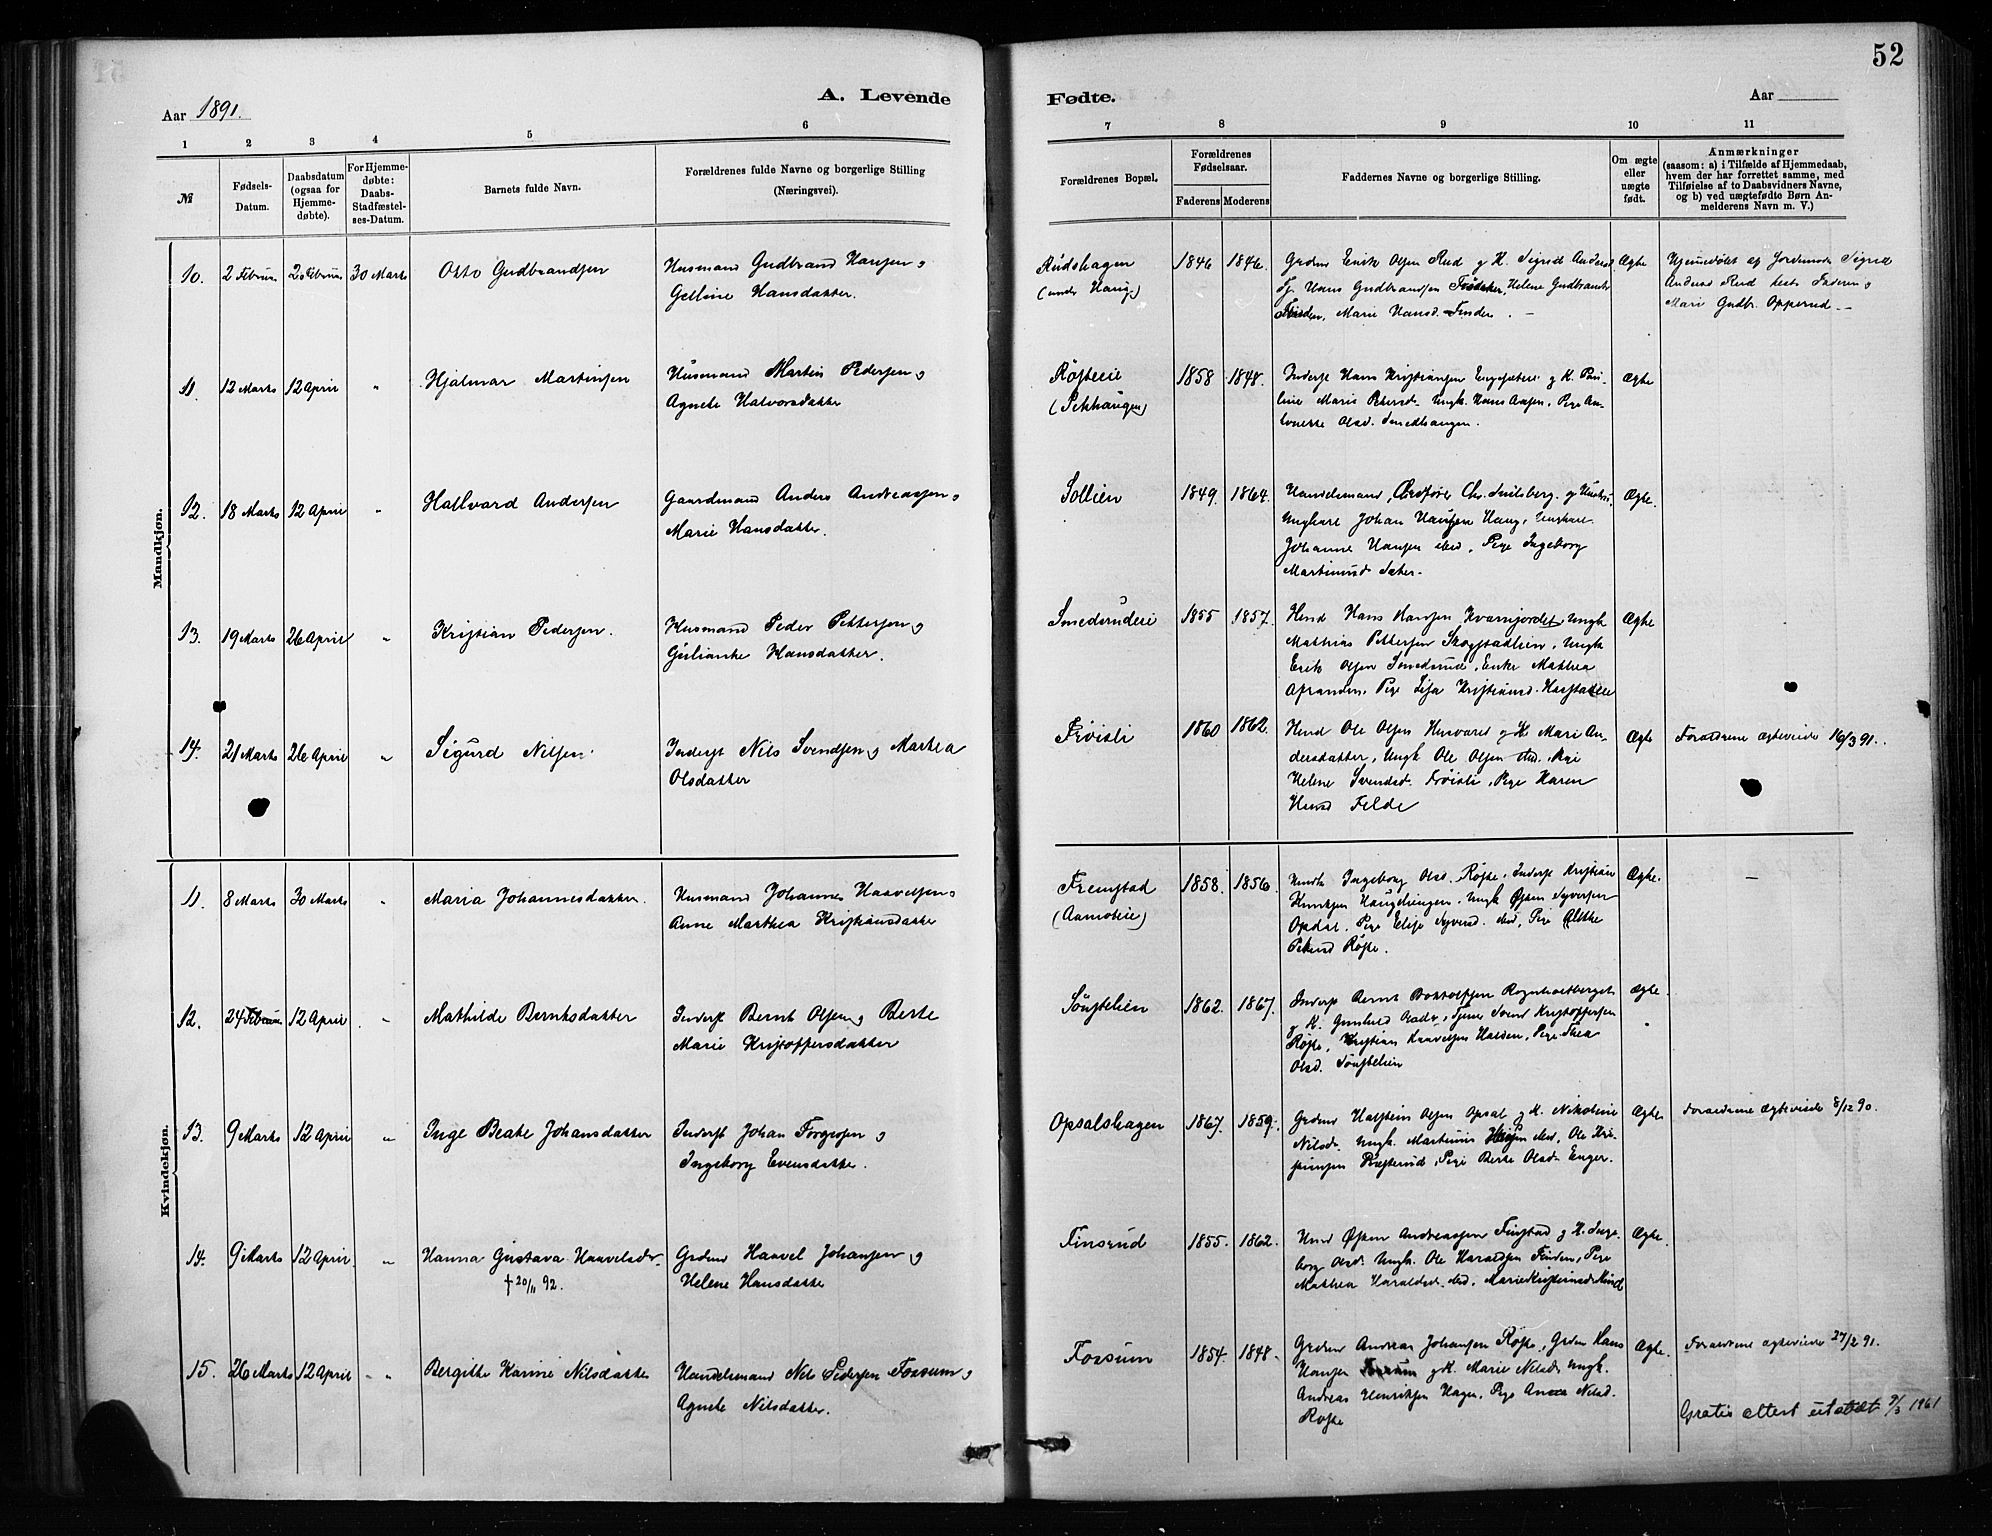 52
Aar 1891.
A. Levende
Fødte.
Aar
1
2
3
4
5
6
7
8
9
10
11
№
Fødsels-
Datum.
Daabsdatum
(ogsaa for
Hjemme-
døbte).
For Hjemme-
døbte:
Daabs-
Stadfæstel-
ses-Datum.
Barnets fulde Navn.
Forældrenes fulde Navne og borgerlige Stilling
(Næringsvei).
Forældrenes Bopæl.
Forældrenes
Fødselsaar.
Faderens
Moderens
Faddernes Navne og borgerlige Stilling.
Om ægte
eller
uægte
født.
Anmærkninger
(saasom: a) i Tilfælde af Hjemmedaab,
hvem der har forrettet samme, med
Tilføielse af to Daabsvidners Navne,
og b) ved uægtefødte Børn An-
melderens Navn m. V.)
Mandkjøn.
10. 2 Februar 2 Februar 30 Marts Otto Gudbrandsen
Husmand Gudbrand Hansen og
Gelline Hansdatter.
Rudshagen
(under Haug)
1846 1846.
Grdmd Erik Olsen Rud g K. Sigrid Andersd
Tj. Hans Gudbrandsen Helene Gudbrandsd
Marie Hansd. Finden. -
Ægte
Hjemmedøbt af Jordemoder Sigrid
Andersd Rud test Faderen og
Mari Gudbr. Opperud -
11. 12 Marts 12 April " Hjalmar Martinsen
Husmand Martin Pedersen og
Agnete Halvorsdatter
Røsteeie
1858 1848.
Inderst Hans Kristiansen g K. Pau-
line Marie Petersd. Ungk. Hans Aasen, Pige An-
tonette Olsd. Smedhaugen.
Ægte
12. 18 Marts 12 April " Hallvard Andersen
Gaardmand Anders Andreassen og
Marie Hansdatter.
Sollien
1849. 1864.
Handelsmand, Chr. g Hustru,
Ungkarl Johan Hansen Haug,
Johanne Hansen ibid, Pige Ingeborg
Martinusd Sæter.
Ægte.
13. 19 Marts 26 April " Kristian Pedersen.
Husmand Peder Pettersen og
Gulianke Hansdatter.
Smedsrudeie
1855 1857.
Hmd Hans Hansen Kvernjordet, Ungk
Mathias Pettersen Skogstadlien, Ungk
Erik Olsen Smedsrud, Enke Mathea
Pige Lisa Kristiansd.
Ægte
14. 21 Marts 26 April " Sigurd Nilsen.
Inderst Nils Svendsen og Marthea
Olsdatter
Frøisli
1860 1862.
Hmd Ole Olsen g K. Mari An-
dersdatter, Ungk Ole Olsen ibid, Pige
Helene Svendsd. Frøisli, Pige Karen
Hansd Felde
Ægte
Forældrene ægteviede 16/3 91.
Kvindekjøn.
11. 8 Marts 30 Marts " Maria Johannesdatter.
Husmand Johannes Haavelsen og
Anne Marthea Kristiansdatter
Fremstad
(Aamoteie)
1858. 1856.
Ingeborg Olsd. Røste, Inderst Kristian
Henriksen Haugslingen, Ungk Østen Syversen
Opdal, Pige Elise Syversd. ibid, Pige
Petersd Røste.
Ægte.
-
12. 24 Februar 12 April " Mathilde Berntsdatter
Inderst Bernt Olsen og Berte
Marie Kristoffersdatter
Sønstelien
1862. 1867.
Inderst Bernt
g K. Gunhild Svend Kristoffersen
Røste, Kristian Haavelsen Halden, Pige Thea
Olsd. Sønstelien
Ægte.
13. 9 Marts 12 April " Inge Beate Johansdatter
Inderst Johan Torgersen og
Ingeborg Evensdatter.
Opsalshagen
1867. 1859.
Grdmd Halsten Olsen Opsal g K. Nikoline
Nilsd. Ungk. Martinus ibid, Ole Kri-
stiansen Pige Berte Olsd. Enger.
Ægte
Forældrene ægteviede 8/12 90.
14. 9 Marts 12 April. " Hanna Gustava Haavelsdr.
† 20/11 92.
Grdmd Haavel Johansen og
Helene Hansdatter
Finsrud
1855. 1862.
Hmd Østen Andreassen Finstad g K. Inge-
borg Olsd. Ungk. Ole Haraldsen Finden, Pige
Mathea Haraldsd. ibid, Marie Kristiansd
Ægte.
15. 26 Marts 12 April " Bergitte Karine Nilsdatter
Handelsmand Nils Pedersen Fossum og
Agnete Nilsdatter.
Fossum
1854. 1848.
Grdmd Andreas Johansen Røste, Grdm Hans
Hansen g K. Marie Nilsd. Ungk.
Andreas Henriksen Hagen, Pige Anne Nilsd.
Røste
Ægte.
Forældrene ægteviede 27/2 91.
Gratis attest utstedt 9/3 1961